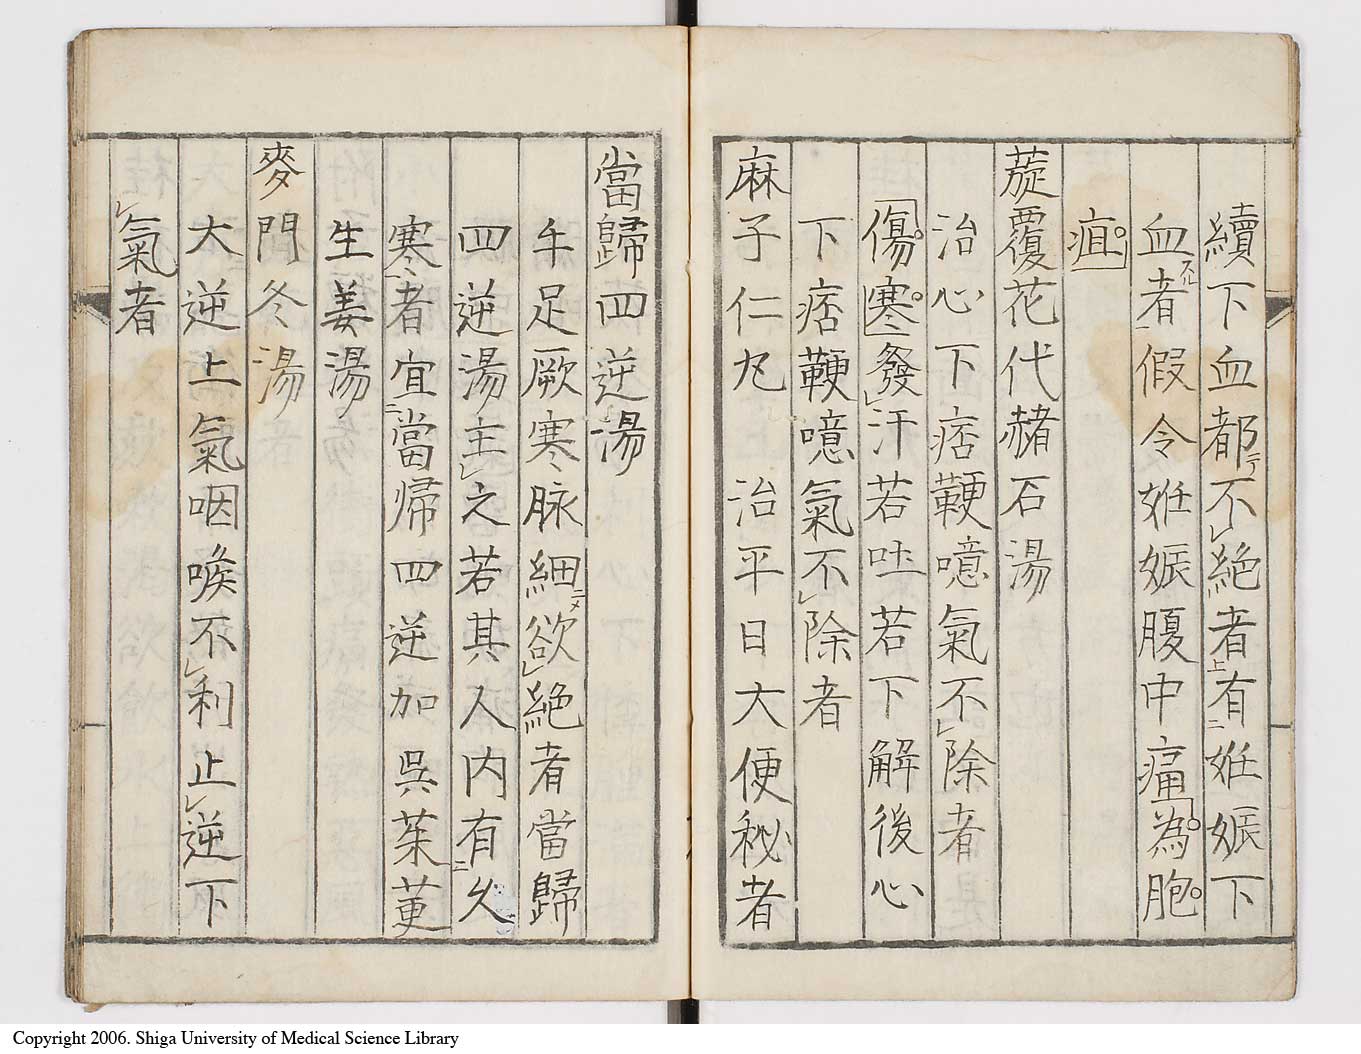 續下血都テ不レ絶者上有二姙娠下
血者一假令姙娠腹中痛為胞
疽
蔙覆花代赭石湯
治心下痞鞕噫氣不レ除者
傷寒發レ汗若吐若下解後心
下痞鞕噫氣不レ除者
麻子仁丸 治平日大便秘者
當歸四逆湯
手足厥寒脉細ニメ欲レ絶者當歸
四逆湯主レ之若其人内有二久
寒一者宜二當帰四逆加呉茱茰
生姜湯
麥門冬湯
大逆上氣咽喉不レ利止レ逆下
レ氣者
Copyright 2006. Shiga University of Medical Science Library